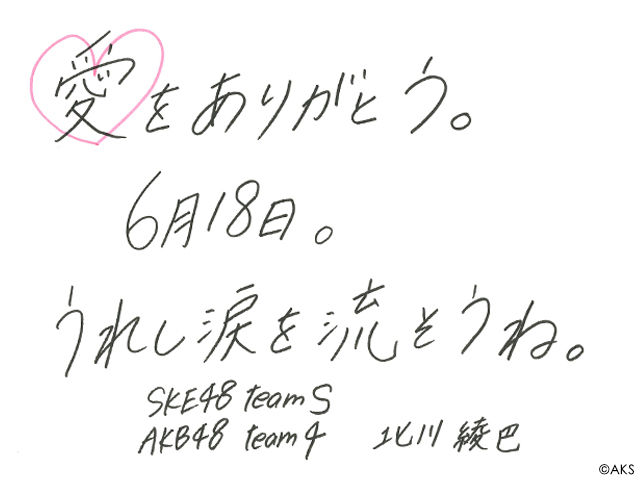 愛をありがとう。
6月18日。
うれし涙を流そうね。
SKE48 teamS
AKB48 team4 北川 綾巴
©AKS